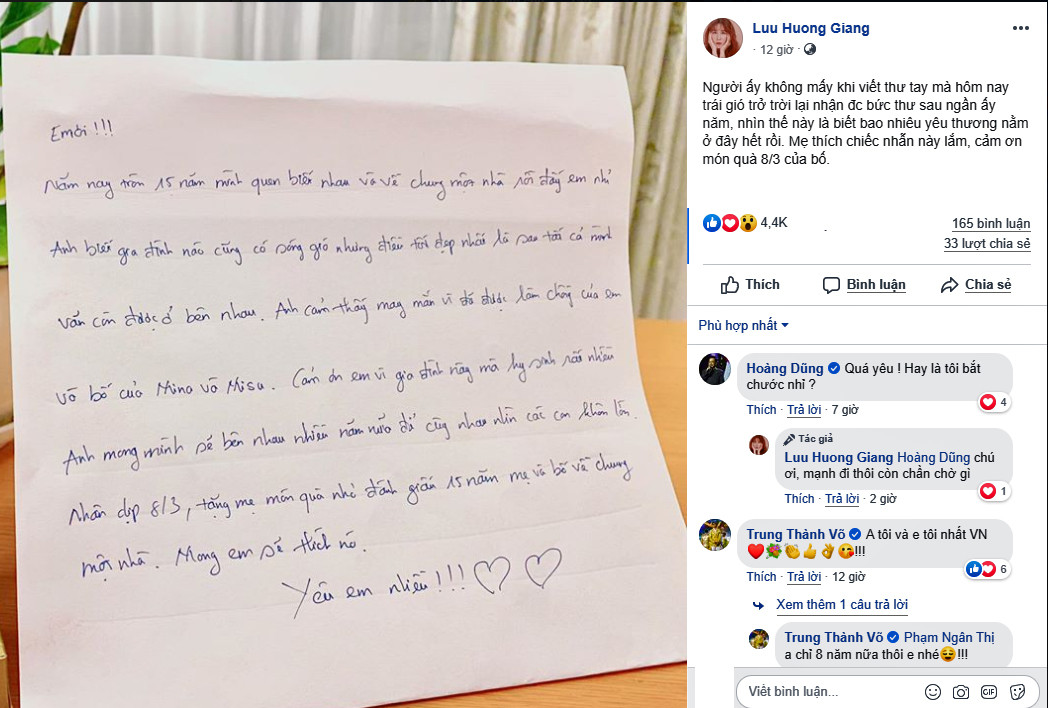 Em ơi !!!
Năm nay tròn 15 năm mình quen biết nhau và về chung một nhà rồi đấy em nhỉ
Anh biết gia đình nào cũng có sóng gió nhưng điều tốt đẹp nhất là sau tất cả mình
vẫn còn được ở bên nhau. Anh cảm thấy may mắn vì đã được làm chồng của em
và bố của Mina và Misu. Cảm ơn em vì gia đình này mà hy sinh rất nhiều
Anh mong mình sẽ bên nhau nhiều năm nữa để cùng nhau nhìn các con khôn lớn.
Nhân dịp 8/3, tặng mẹ món quà nhỏ đánh giấu 15 năm mẹ và bố về chung
một nhà. Mong em sẽ thích nó.
Yêu em nhiều !!! ♡ ♡
Luu Huong Giang
· 12 giờ ·
Người ấy không mấy khi viết thư tay mà hôm nay
trái gió trở trời lại nhận đc bức thư sau ngần ấy
năm, nhìn thế này là biết bao nhiêu yêu thương nằm
ở đây hết rồi. Mẹ thích chiếc nhẫn này lắm, cảm ơn
món quà 8/3 của bố.
4,4K
165 bình luận
33 lượt chia sẻ
Thích Bình luận Chia sẻ
Phù hợp nhất
Hoàng Dũng Quá yêu ! Hay là tôi bắt
chước nhỉ ?
4
Thích · Trả lời · 7 giờ
Tác giả
Luu Huong Giang Hoàng Dũng chú
ơi, mạnh đi thôi còn chần chờ gì
1
Thích · Trả lời · 2 giờ
Trung Thành Võ A tôi và e tôi nhất VN
❤️💐👏👍👌😘!!!
6
Thích · Trả lời · 12 giờ
Xem thêm 1 câu trả lời
Trung Thành Võ Phạm Ngân Thị
a chỉ 8 năm nữa thôi e nhé😌!!!
Viết bình luận...
GIF